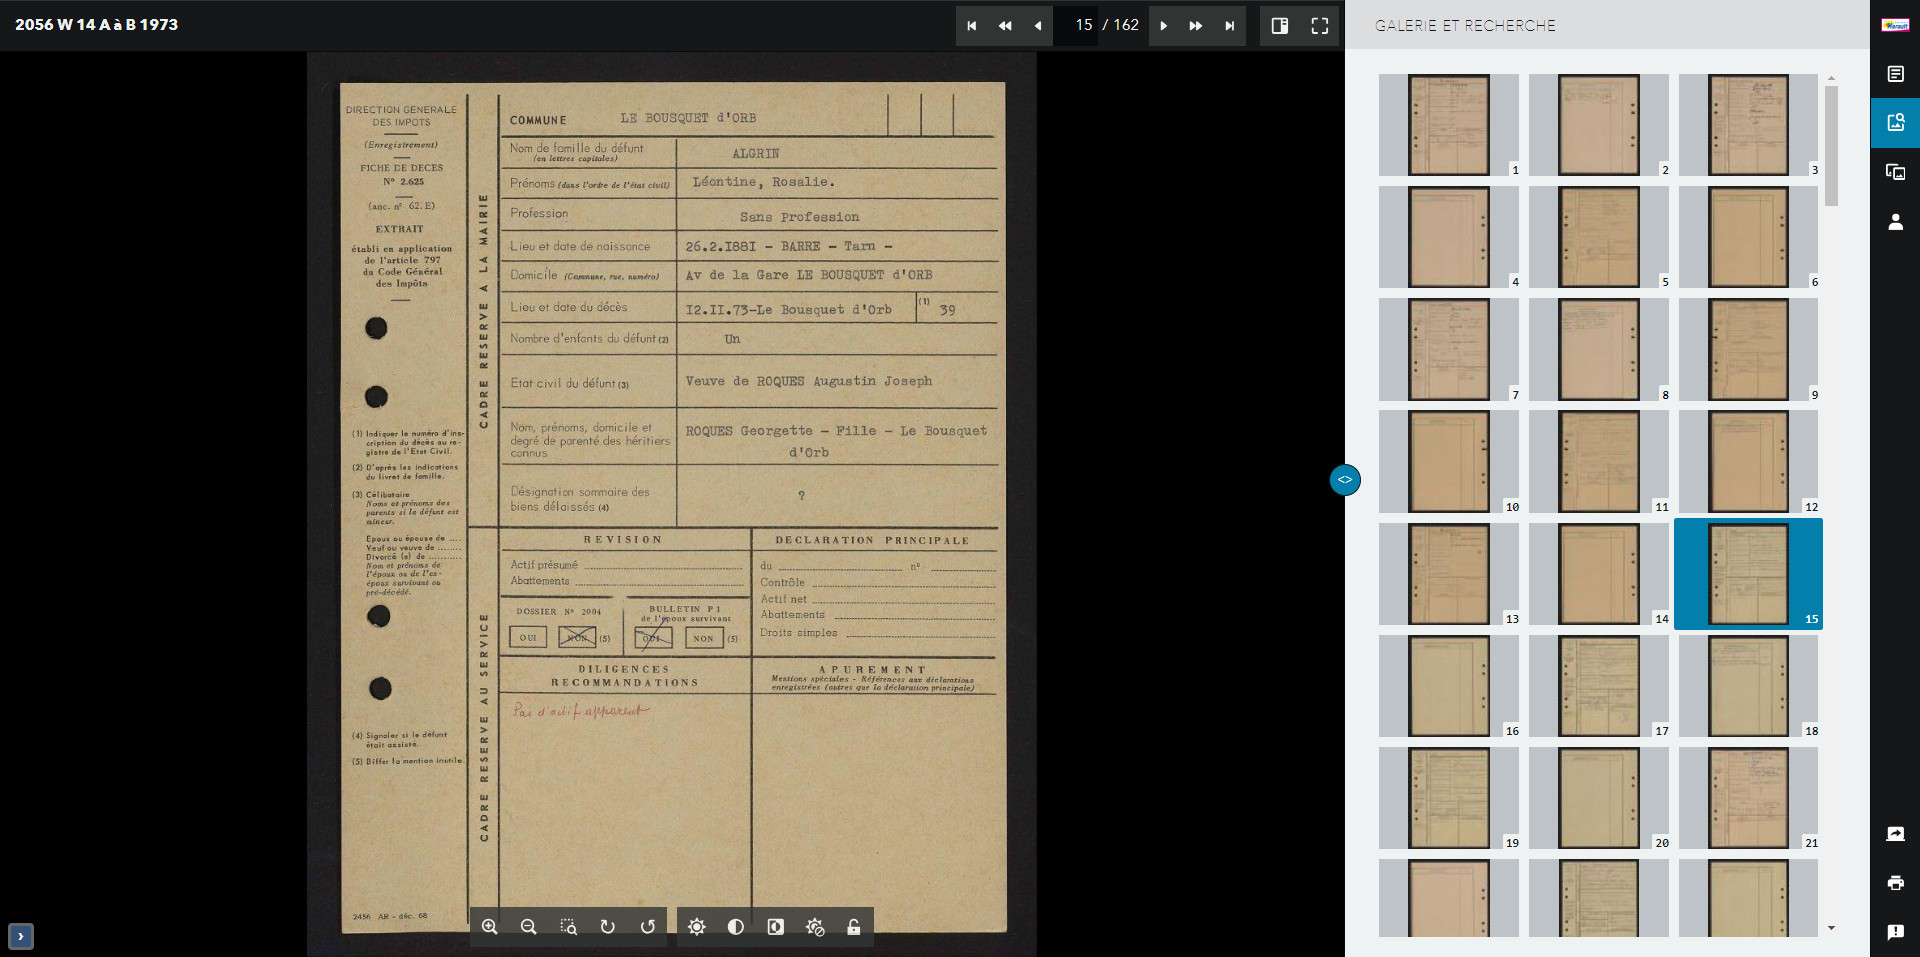 2056 W 14 A à B 1973
15 / 162
GALERIE ET RECHERCHE
DIRECTION GENERALE
DES IMPOTS
(Enregistrement)
FICHE DE DECES
Nº 2.625
(anc. nº 62.E)
EXTRAIT
établi en application
de l'article 797
du Code Général
des Impôts
(1) Indiquer le numéro d'ins-
cription du décès au re-
gistre de l'Etat Civil.
(2) D'après les indications
du livret de famille.
(3) Célibataire
Noms et prénoms des
parents si le défunt est
mineur.
Epoux ou épouse de ....
Veuf ou veuve de .......
Divorcé (e) de ..........
Nom et prénoms de
l'époux ou de l'ex-
époux survivant ou
pré-décédé.
(4) Signaler si le défunt
était assisté.
(5) Biffer la mention inutile.
2456 AR - déc. 68
CADRE RESERVE A LA MAIRIE
COMMUNE LE BOUSQUET d'ORB
Nom de famille du défunt ALGRIN
(en lettres capitales)
Prénoms (dans l'ordre de l'état civil) Léontine, Rosalie.
Profession Sans Profession
Lieu et date de naissance 26.2.I88I - BARRE - Tarn -
Domicile (Commune, rue, numéro) Av de la Gare LE BOUSQUET d'ORB
Lieu et date du décès I2.II.73-Le Bousquet d'Orb (1) 39
Nombre d'enfants du défunt (2) Un
Etat civil du défunt (3) Veuve de ROQUES Augustin Joseph
Nom, prénoms, domicile et ROQUES Georgette - Fille - Le Bousquet
degré de parenté des héritiers d'Orb
connus
Désignation sommaire des ?
biens délaissés (4)
CADRE RESERVE AU SERVICE
REVISION
Actif présumé
Abattements
DOSSIER Nº 2004
OUI NON (5)
BULLETIN P 1
de l'époux survivant
OUI NON (5)
DECLARATION PRINCIPALE
du nº
Contrôle
Actif net
Abattements
Droits simples
DILIGENCES
RECOMMANDATIONS
Pas d'actif apparent
APUREMENT
Mentions spéciales - Références aux déclarations
enregistrées (autres que la déclaration principale)
1
2
3
4
5
6
7
8
9
10
11
12
13
14
15
16
17
18
19
20
21